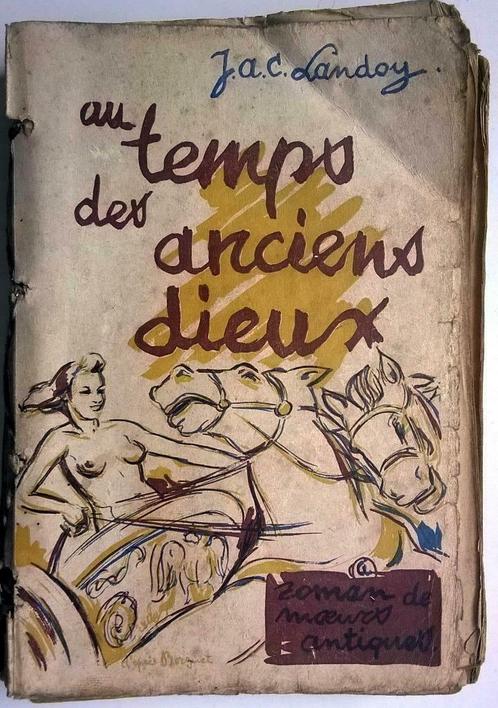 J.A.C. Landoy.
au
temps
des
anciens
dieux
roman de
mœurs
antiques.
d'après Bocquet